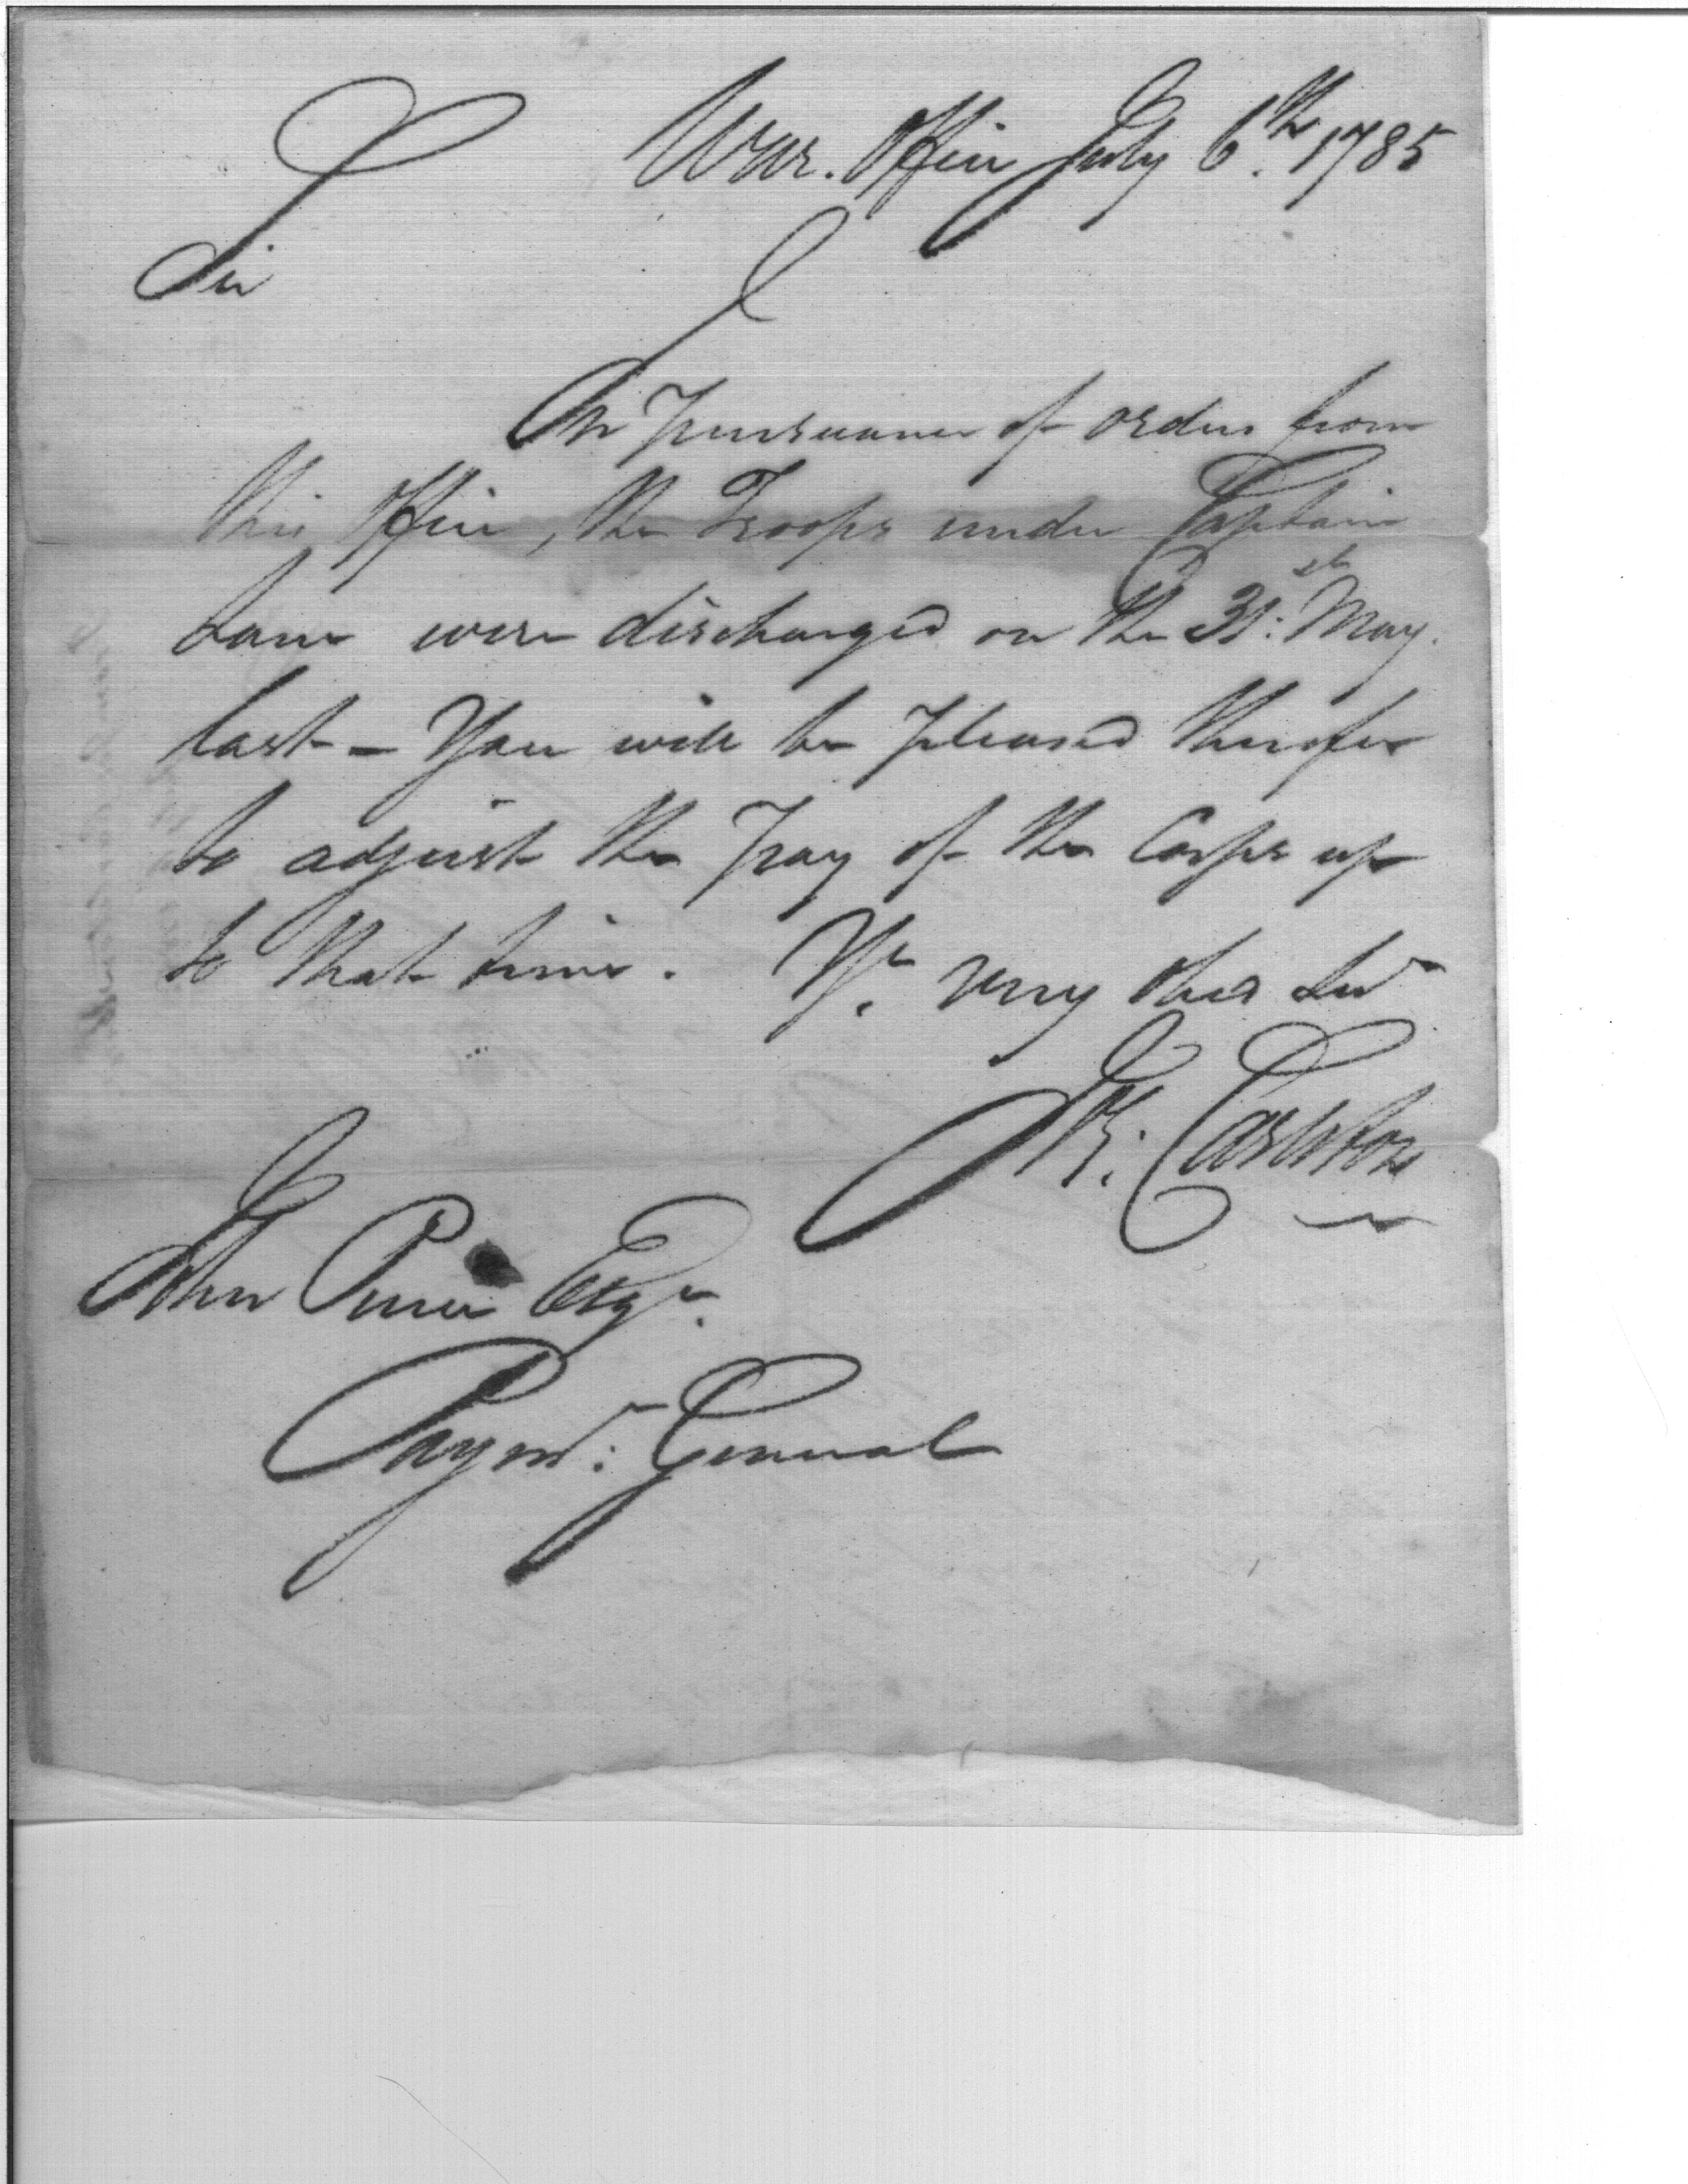 War. Office July 6.th 1785
Sir
In pursuance of orders from
this Office, the Troops under Captain
were discharged on the 31:st May.
last - You will be pleased therefore
to adjust the pay of the Corps up
to that time. Yr. very obed Sert
Jos: Carleton
John Pierce Esqr.
Paymr: General